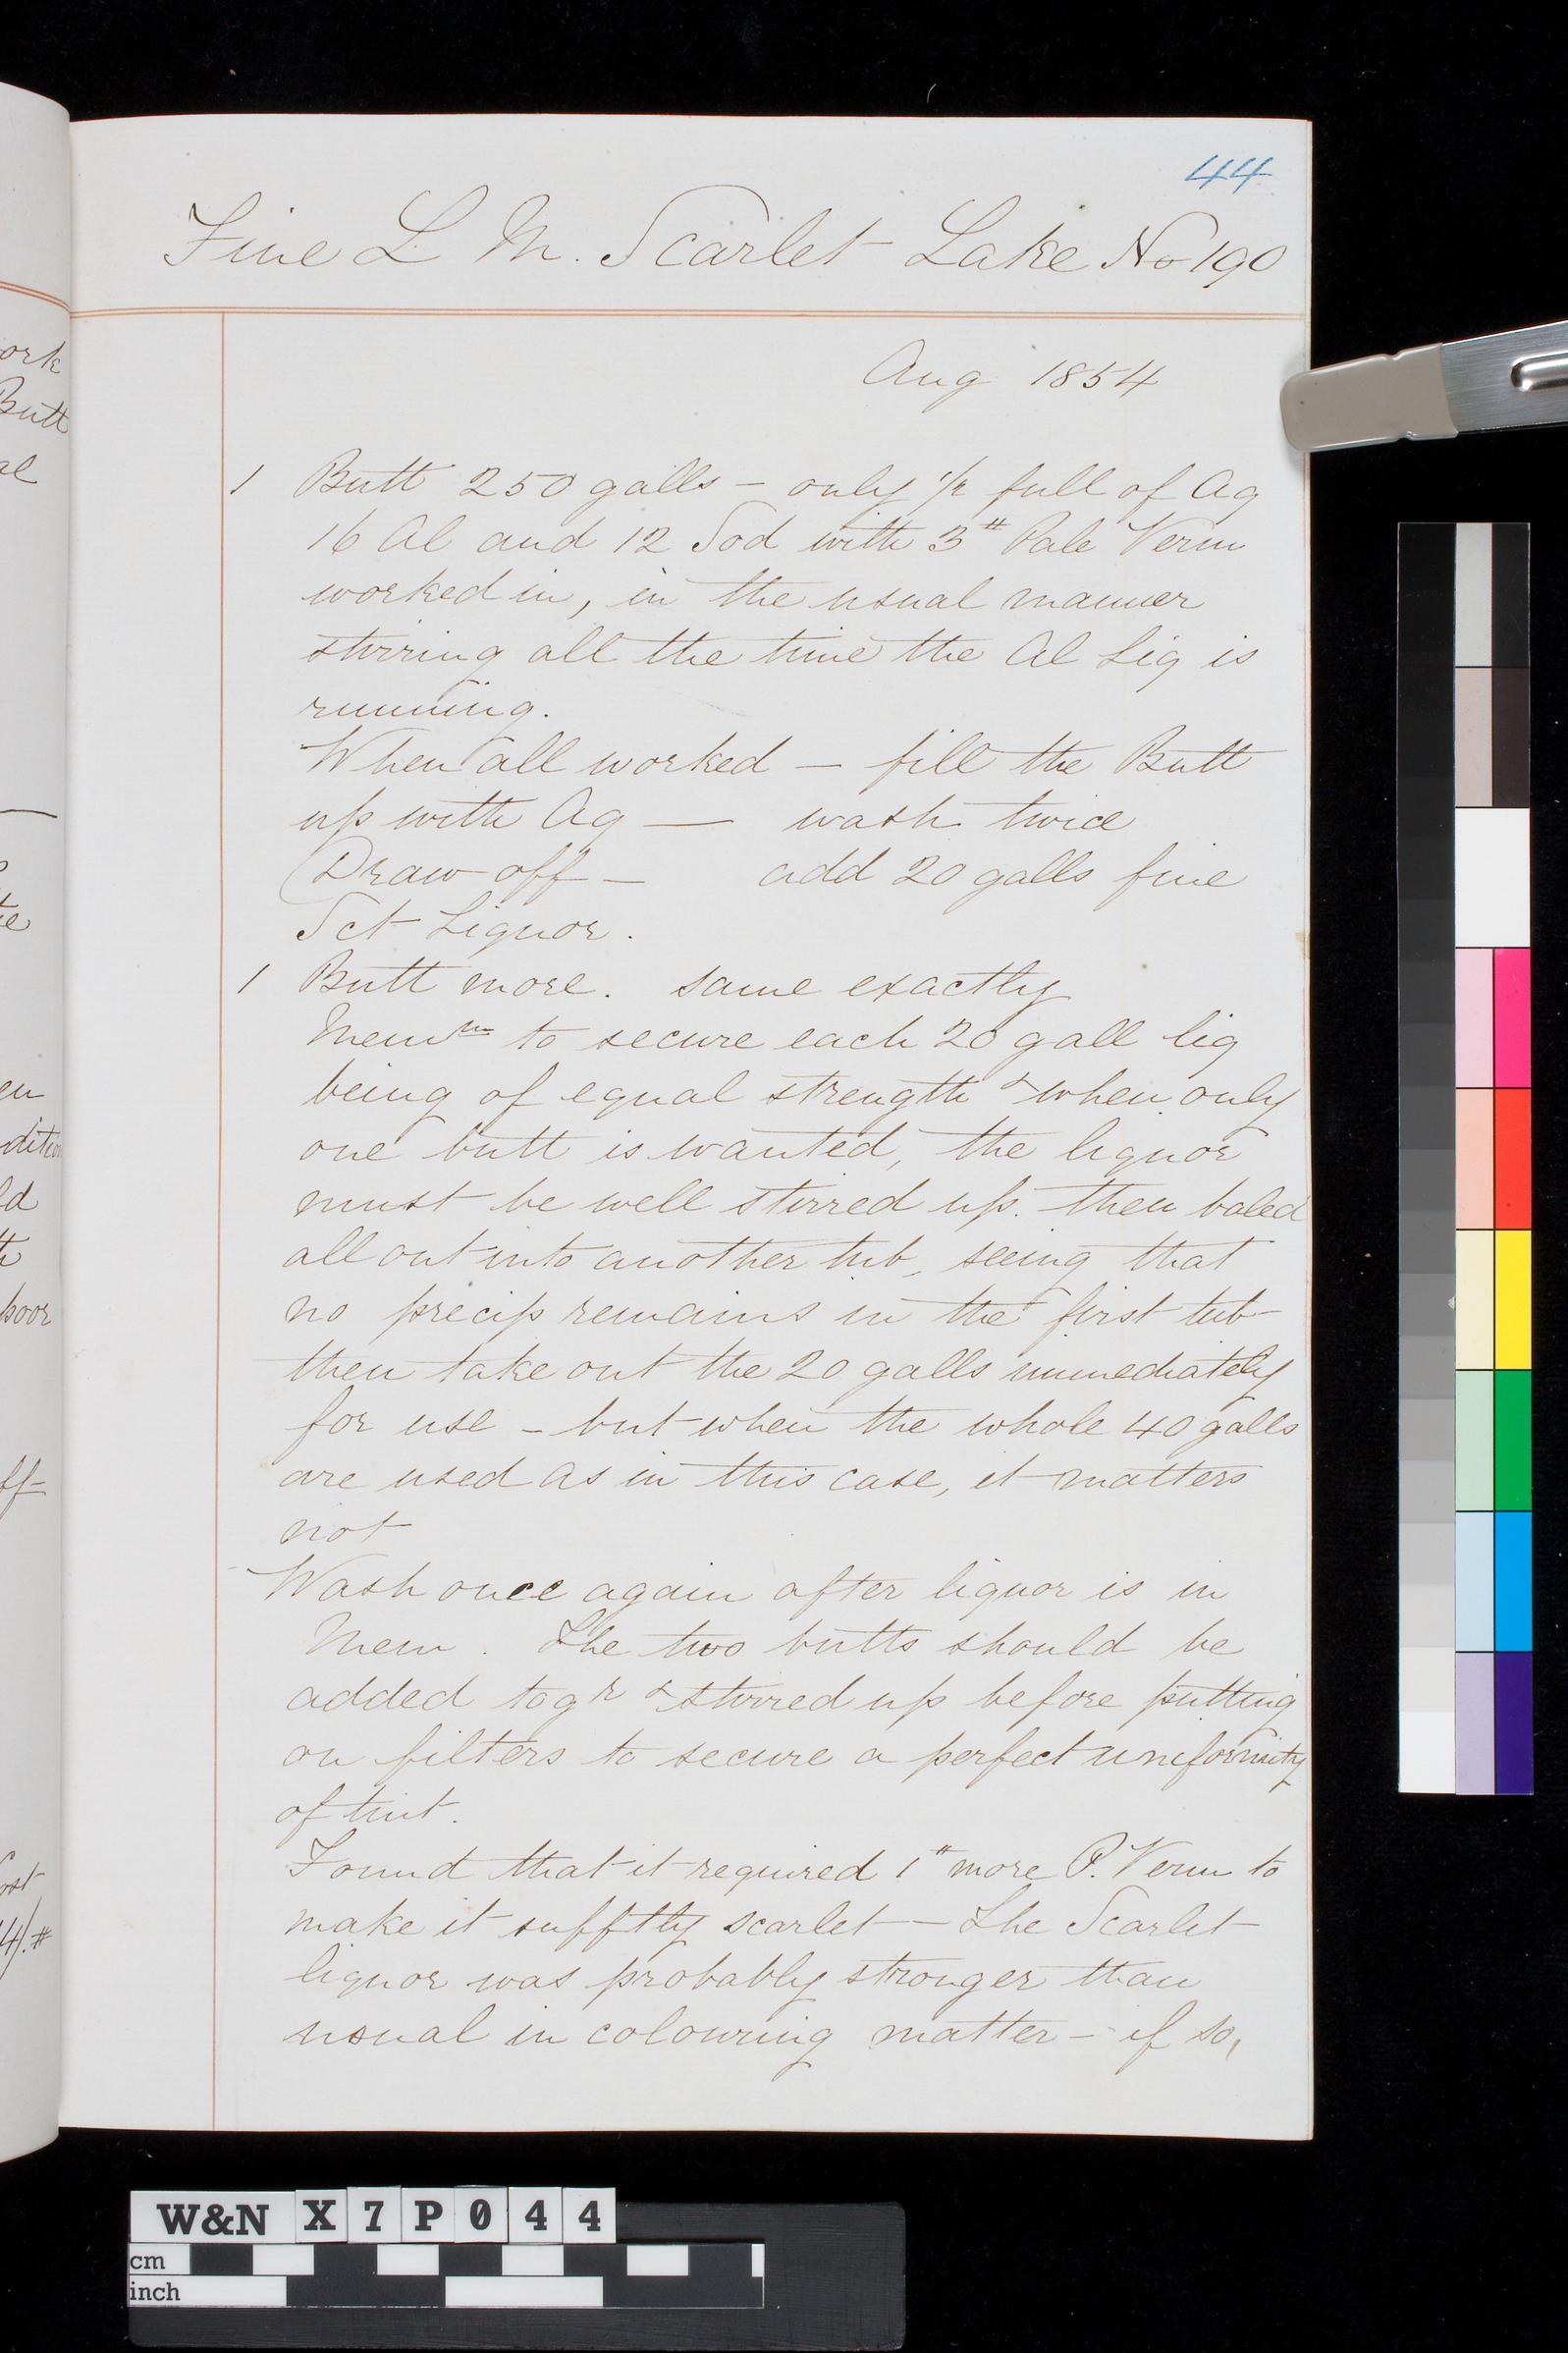 44
Fine L M. Scarlet Lake No 190
Aug 1854
1 Butt 250 galls - only 1/2 full of Aq
16 Al and 12 Sod with 3# Pale Verm
worked in, in the usual manner
stirring all the time the Al Liq is
running.
When all worked - fill the Butt
up with Aq — wash twice
Draw off - add 20 galls fine
Sct Liquor.
1 Butt more. same exactly
Memm to secure each 20 gall liq
being of equal strength & when only
one butt is wanted, the liquor
must be well stirred up. then baled
all out into another tub, seeing that
no precip remains in the first tub
then take out the 20 galls immediately
for use - but when the whole 40 galls
are used as in this case, it matters
not
Wash once again after liquor is in
Mem. The two butts should be
added togr & stirred up before putting
on filters to secure a perfect uniformity
of tint.
Found that it required 1# more P. Verm to
make it sufftly scarlet — The Scarlet
liquor was probably stronger than
usual in colouring matter - if so,
ork
Butt
al
te
en
ld
poor
ff
ost
4/.#
W&N X 7 P 0 4 4
cm
inch